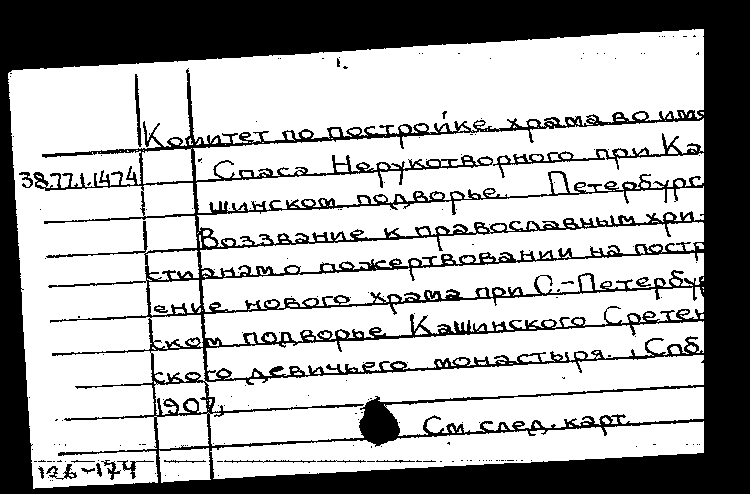 1.
Комитет по постройке храма во имя
38.77.1.1474 Спаса Нерукотворного при Ка
шинском подворье. Петербург
Воззвание к православным хри-
стианам о пожертвовании на постр
ение нового храма при С.-Петербур
ском подворье Кашинского Сретен
ского девичьего монастыря., Спб,
1907,
См. след. карт.
126-174